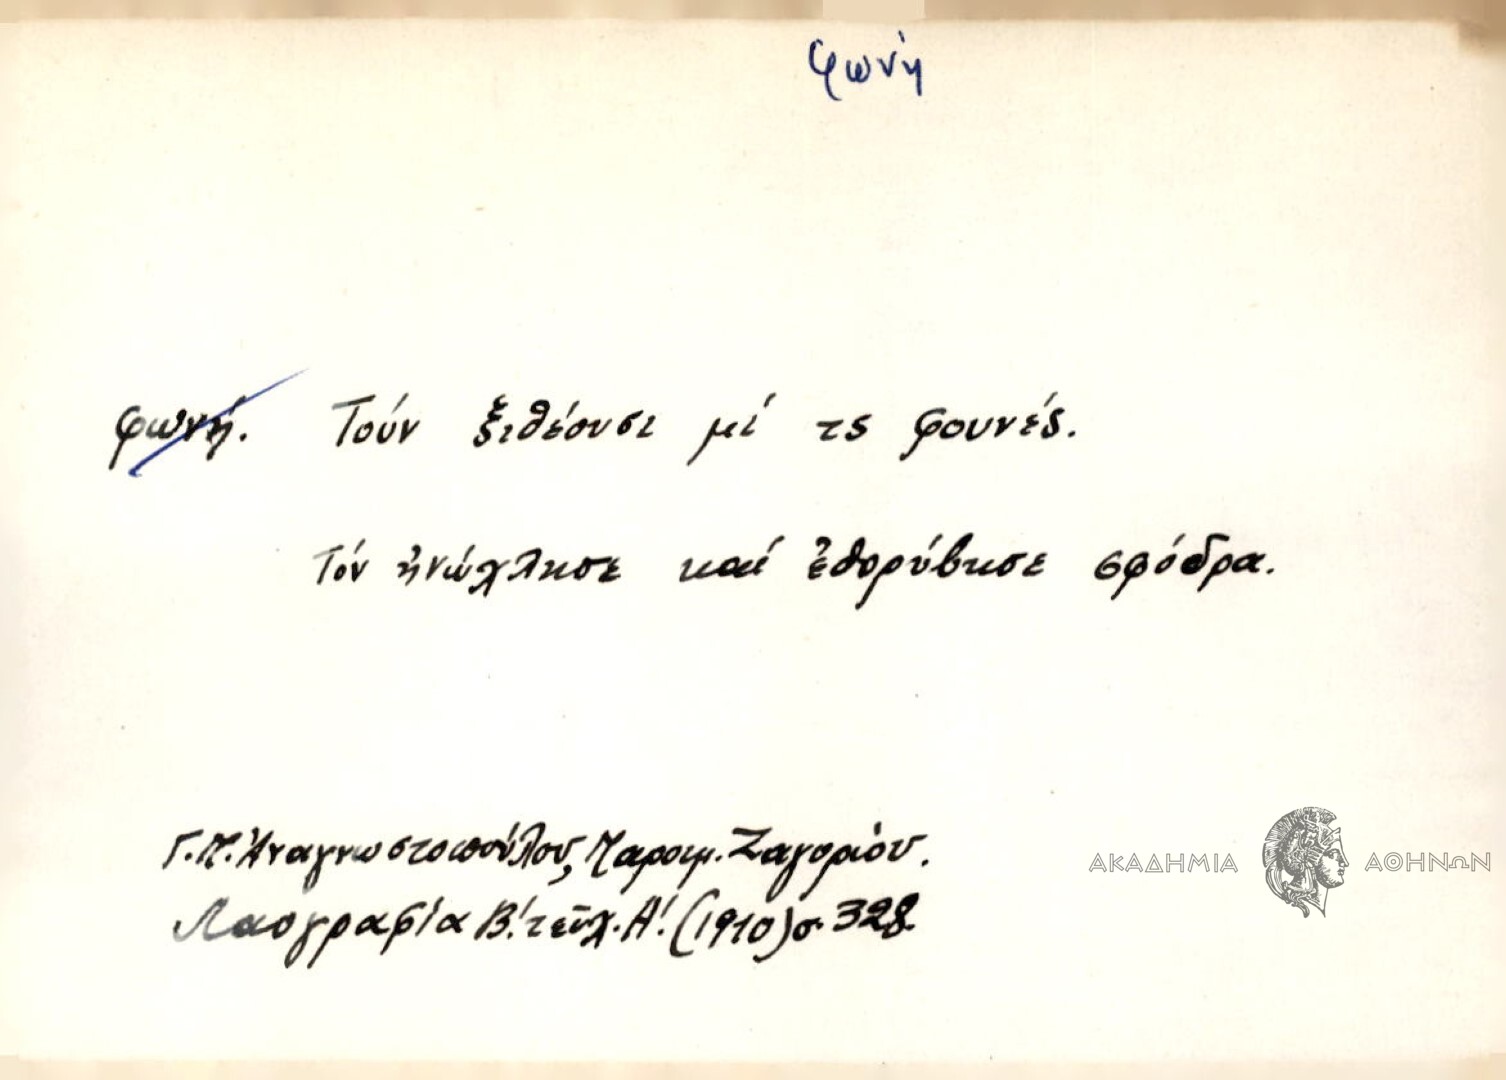 φωνή
φωνή. Τούν ξιθέουσι μί τς φουνές.
Τόν ἠνώχλησε καί ἐθορύβησε σφόδρα.
Γ. Π. Ἀναγνωστοπούλου, Παροιμ. Ζαγορίου.
Λαογραφία Β΄. τεῦχ. Α΄. (1910) σ. 328.
ΑΚΑΔΗΜΙΑ ΑΘΗΝΩΝ